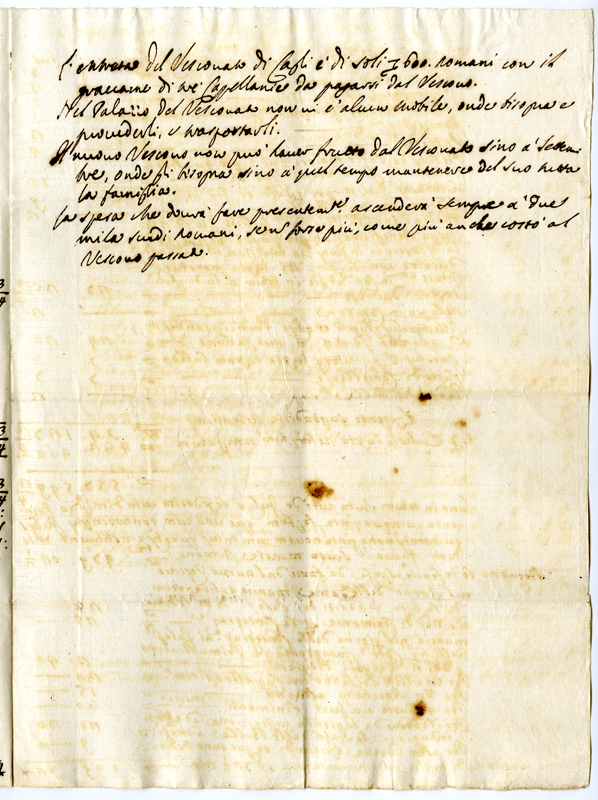 L'entrata del Vescovato di Cagli è di soli 600. romani con il
gravame di tre Capellanie da pagarsi dal Vescovo.
Nel Palazzo del Vescovato non vi è alcun mobile, onde bisogna e
provederli, e trasportarli.
Il nuovo Vescovo non può haver frutto dal Vescovato sino à Settem
bre, onde bisogna sino à quel tempo mantenere del suo tutta
la famiglia.
La spesa che dovrà fare presentemte. ascenderà sempre à due
mila scudi romani, e forse più, come più anche costò al
Vescovo passato.
3/4
3/4
3/4